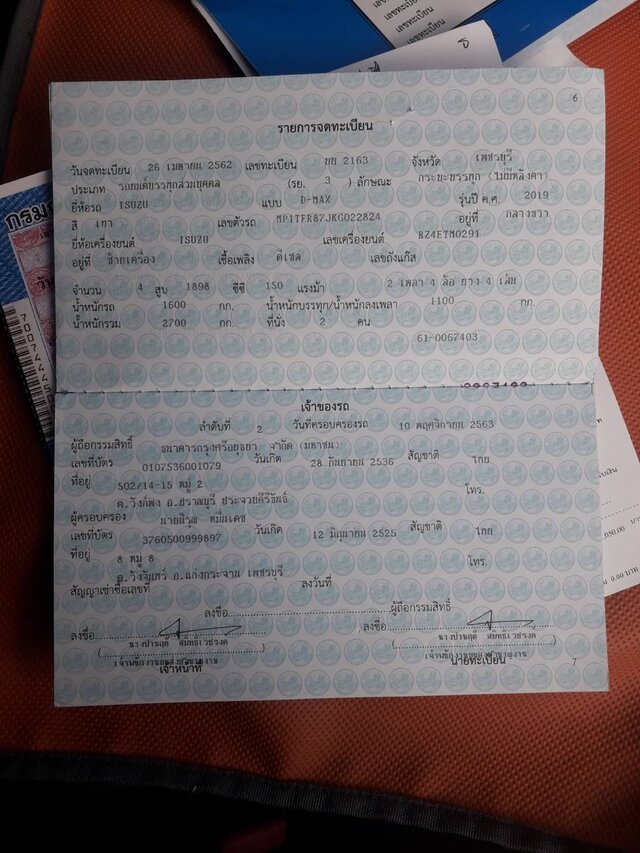 เลขทะเบียน
เลขทะเบียน
เลขทะเบียน
6
รายการจดทะเบียน
วันจดทะเบียน 26 เมษายน 2562 เลขทะเบียน ขย 2163 จังหวัด เพชรบุรี
ประเภท รถยนต์บรรทุกส่วนบุคคล (รย. 3 ) ลักษณะ กระบะบรรทุก (ไม่มีหลังคา)
ยี่ห้อรถ ISUZU แบบ D-MAX รุ่นปี ค.ศ. 2019
สี เทา เลขตัวรถ MP1TFR87JKG022824 อยู่ที่ กลางขวา
ยี่ห้อเครื่องยนต์ ISUZU เลขเครื่องยนต์ RZ4ETM0291
อยู่ที่ ซ้ายเครื่อง เชื้อเพลิง ดีเซล เลขถังแก๊ส
จำนวน 4 สูบ 1898 ซีซี 150 แรงม้า 2 เพลา 4 ล้อ ยาง 4 เส้น
น้ำหนักรถ 1600 กก. น้ำหนักบรรทุก/น้ำหนักลงเพลา 1100 กก.
น้ำหนักรวม 2700 กก. ที่นั่ง 2 คน
61-0067403
เจ้าของรถ
ลำดับที่ 2 วันที่ครอบครองรถ 10 พฤศจิกายน 2563
ผู้ถือกรรมสิทธิ์ ธนาคารกรุงศรีอยุธยา จำกัด (มหาชน)
เลขที่บัตร 0107536001079 วันเกิด 28 กันยายน 2536 สัญชาติ ไทย
ที่อยู่ 502/14-15 หมู่ 2 โทร.
ต.วังก์พง อ.ปราณบุรี ประจวบคีรีขันธ์
ผู้ครอบครอง
เลขที่บัตร 3760500999897 วันเกิด 12 มิถุนายน 2525 สัญชาติ ไทย
ที่อยู่ 8 หมู่ 8 โทร.
ต.วังจันทร์ อ.แก่งกระจาน เพชรบุรี
สัญญาเช่าซื้อเลขที่ ลงวันที่
ลงชื่อ ผู้ถือกรรมสิทธิ์
ลงชื่อ ลงชื่อ
เจ้าหน้าที่ นายทะเบียน
7